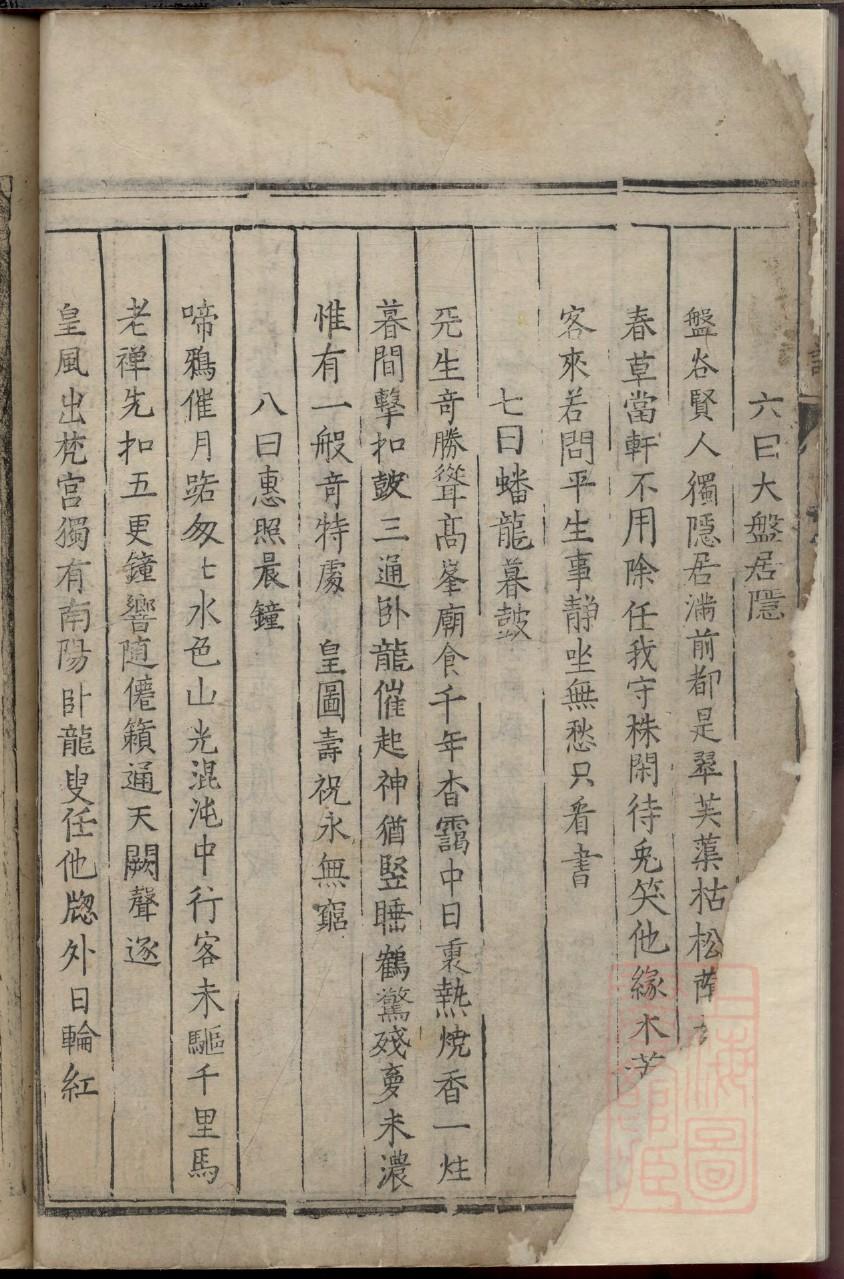 六曰大盤居隱
盤谷賢人獨隱居滿前都是翠芙蕖枯松
春草當軒不用除任我守株閑待兎笑他緣木
客來若問平生事静坐無愁只看書
七曰蟠龍暮皷
先生竒勝聳髙峯廟食千年杳靄中日裏熱燒香一炷
暮間擊扣皷三通卧龍催起神猶竪睡鶴驚殘夢未濃
惟有一般竒特處 皇圖壽祝永無窮
八曰惠照晨鐘
啼鴉催月踣匆匕水色山光混沌中行客未驅千里馬
老禅先扣五更鐘響随僊籟通天闕聲逐
皇風出梵宫獨有南陽卧龍叟任他牎外日輪紅
上海圖